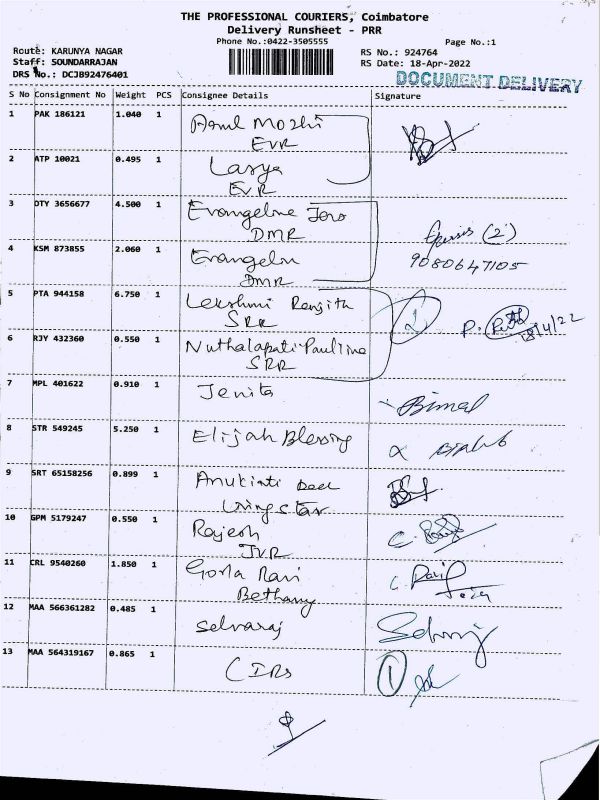 THE PROFESSIONAL COURIERS, Coimbatore
Delivery Runsheet - PRR
Phone No.:0422-3505555
Page No.:1
Route: KARUNYA NAGAR
RS No.: 924764
Staff: SOUNDARRAJAN
RS Date: 18-Apr-2022
DRS No.: DCJB92476401
DOCUMENT DELIVERY
S No Consignment No Weight PCS Consignee Details Signature
1 PAK 186121 1.040 1 Mozhi
EVR
2 ATP 10021 0.495 1 Lasya
EVR
3 OTY 3656677 4.500 1 Evangeline
DMR
(2)
4 KSM 873855 2.060 1 Evangelin
DMR
9080647105
5 PTA 944158 6.750 1 Lekshmi Renjith
SRR
P. 18/4/22
6 RJY 432360 0.550 1 Nuthalapati Pauline
SRR
7 MPL 401622 0.910 1 Jenita
Bimal
8 STR 549245 5.250 1 Elijah Blessing
9 SRT 65158256 0.899 1
Livingstan
10 GPM 5179247 0.550 1 Rajesh
JVR
11 CRL 9540260 1.850 1 Ravi
Bethany
12 MAA 566361282 0.485 1 Selvaraj
13 MAA 564319167 0.865 1 CIRs
1